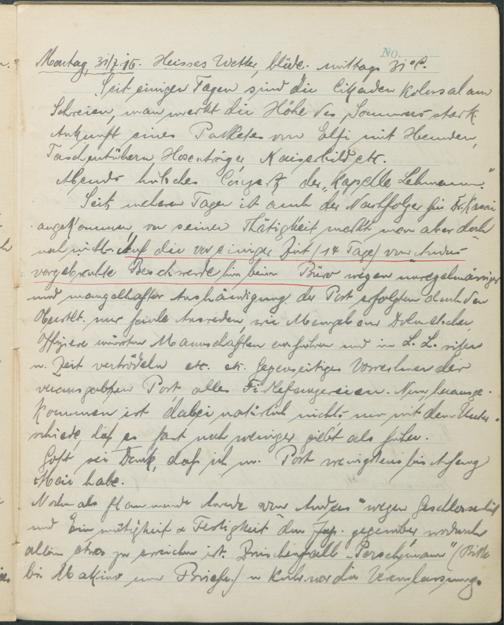 No.
Montag, 31/7.16. Heisses Wetter, blüde. mittags 31°C.
Seit einigen Tagen sind die Cikaden kolossal am
Schreien, man merkt die Höhe des Sommers stark
Ankunft eines Paketes von Elfi mit Hemden,
Taschentüchern Hosenträger Kaiserbild etc.
Abends hübsches Conzert der „Kapelle Lehmann."
Seit mehreren Tagen ist auch der Nachfolger für
angekommen, von seiner Thätigkeit merkt man aber doch
Auf die vor einiger Zeit (14 Tage) von Anders
vorgebrachte Beschwerde hin beim Büro wegen unregelmässiger
und mangelhafter Aushändigung der Post erfolgten durch den
Oberstlt. nur faule Ausreden, wie Mangel an Dolmetscher,
Offiziere müssten Mannschaften und in L. L.
u. Zeit vertrödeln etc. etc. Gegenseitiges Vorrechnen der
Post alles Nun herausge-
kommen ist dabei natürlich nichts nur mit dem Unter-
schiede, daß es fast noch weniger giebt als früher.
Gott sei Dank, daß ich m. Post wenigstens bis Anfang
Mai habe.
Nochmals flammende Anrede von Anders wegen Geschlossenheit
und Einmütigkeit & Festigkeit den Jap. gegenüber wodurch
allein etwas zu erreichen ist. Zwischenfall
bei Makino um Briefe) u. die Veranlassung.